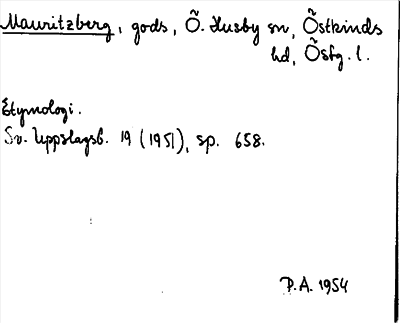 Mauritzberg, gods, Ö. Husby sn, Östkinds
hd, Östg. l.
Etymologi.
Sv. Uppslagsb. 19 (1951), sp. 658.
P.A. 1954